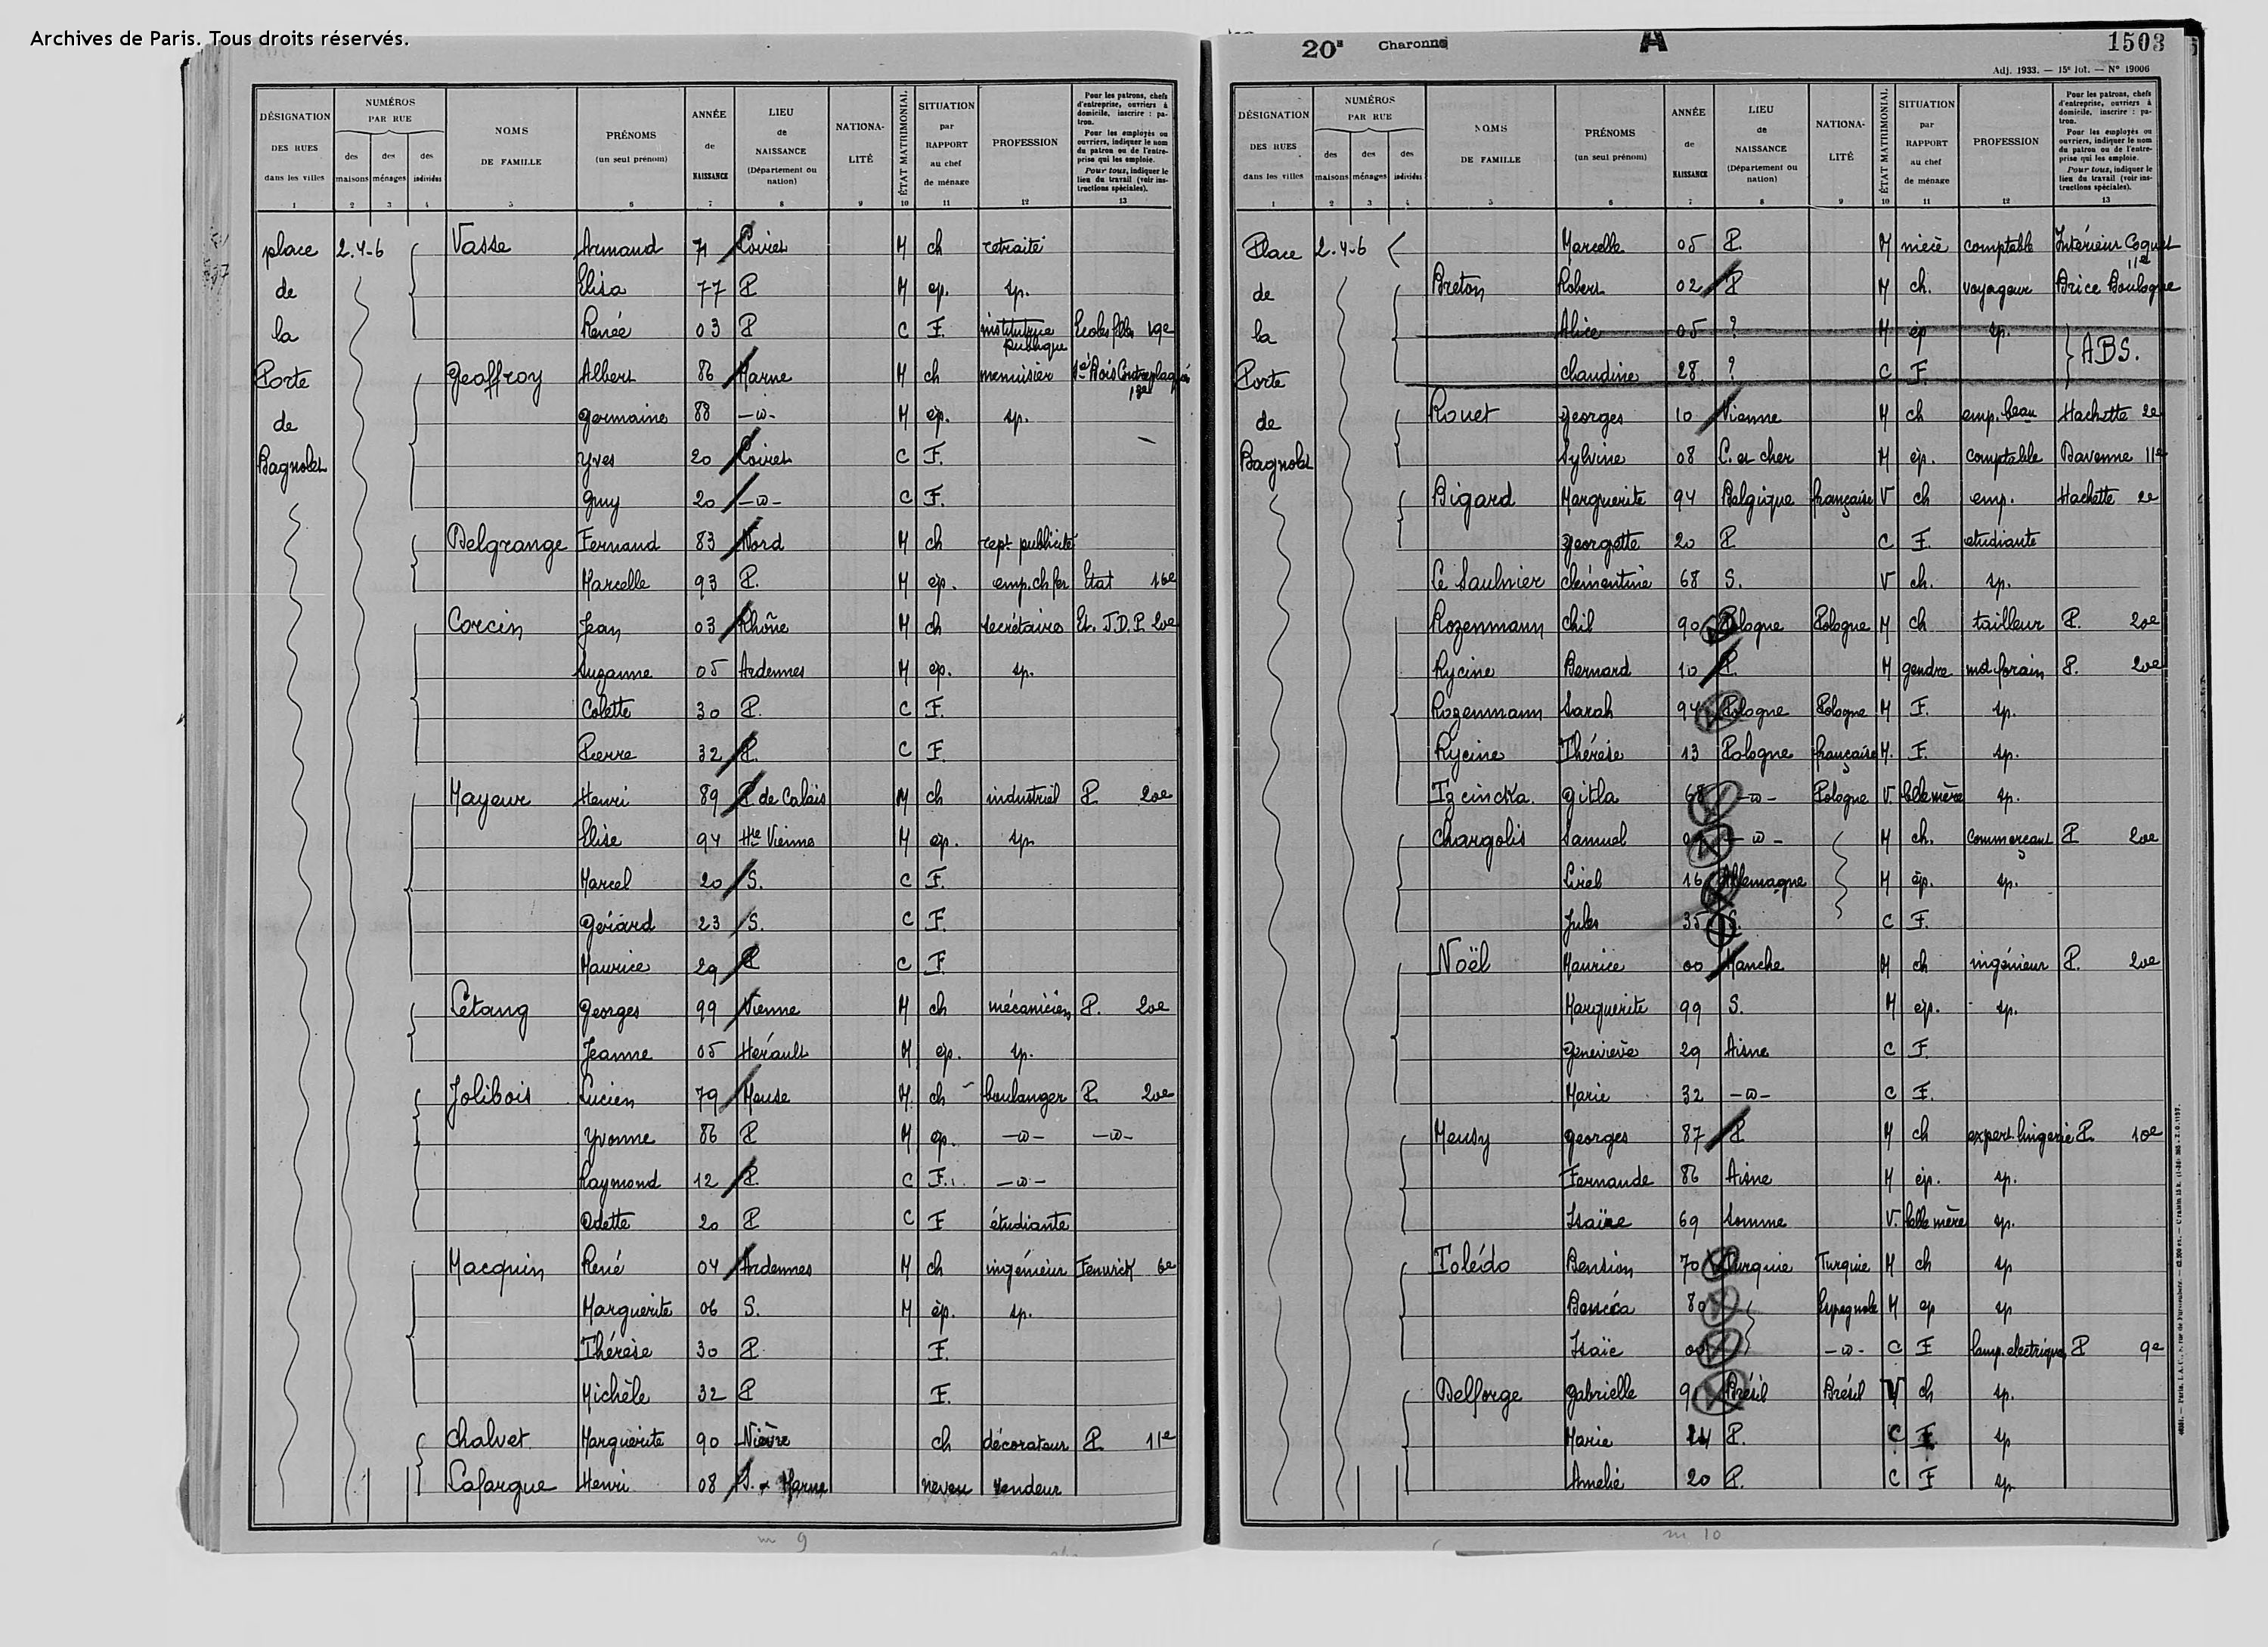 Archives de Paris. Tous droits réservés.
DÉSIGNATION DES RUES dans les villes 1 | NUMÉROS PAR RUE des maisons 2 | des ménages 3 | des individus 4 | NOMS DE FAMILLE 5 | PRÉNOMS (un seul prénom) 6 | ANNÉE de NAISSANCE 7 | LIEU de NAISSANCE (Département ou nation) 8 | NATIONALITÉ 9 | ÉTAT MATRIMONIAL 10 | SITUATION par RAPPORT au chef de ménage 11 | PROFESSION 12 | Pour les patrons, chefs d'entreprise, ouvriers à domicile, inscrire : patron. Pour les employés ou ouvriers, indiquer le nom du patron ou de l'entreprise qui les emploie. Pour tous, indiquer le lieu du travail (voir instructions spéciales). 13
place 2.4-6 Vasse Armand 71 Loiret M ch retraité
de Elisa 77 P M ép. sp.
la Renée 03 P C F. institutrice publique Ecoles filles 19e
Porte Geoffroy Albert 86 Marne M ch menuisier Sté Bois Contreplaqués
de germaine 88 -id- M ép. sp.
Bagnolet Yves 20 Loiret C F.
guy 20 -id- C F.
Delgrange Fernand 83 Nord M ch rept publicité
Marcelle 93 P. M ép. emp. ch fer Etat 16e
Corcin Jean 03 Rhône M ch secrétaire Et. J.D.P. 20e
Suzanne 05 Ardennes M ép. sp.
Colette 30 P. C F.
Pierre 32 P. C F.
Mayeur Henri 89 P de Calais M ch industriel P. 20e
Elise 94 Hte Vienne M ép. sp.
Marcel 20 S. C F.
gérard 23 S. C F.
Maurice 29 P C F.
Létang georges 99 Vienne M ch mécanicien P. 20e
Jeanne 05 Hérault M ép. sp.
Jolibois Lucien 79 Meuse M. ch boulanger P. 20e
Yvonne 86 P M ép. -id- -id-
Raymond 12 P. C F. -id-
Odette 20 P C F étudiante
Macquin René 04 Ardennes M ch ingénieur Fenwick 6e
Marguerite 06 S. M ép. sp.
Thérèse 30 P F.
Michèle 32 P F.
Chalvet Marguerite 90 Nièvre ch décorateur P. 11e
Lafargue Henri 08 S. & Marne neveu vendeur
m 9
20e Charonne A 1503
Adj. 1933. — 15e lot. — N° 19006
DÉSIGNATION DES RUES dans les villes 1 | NUMÉROS PAR RUE des maisons 2 | des ménages 3 | des individus 4 | NOMS DE FAMILLE 5 | PRÉNOMS (un seul prénom) 6 | ANNÉE de NAISSANCE 7 | LIEU de NAISSANCE (Département ou nation) 8 | NATIONALITÉ 9 | ÉTAT MATRIMONIAL 10 | SITUATION par RAPPORT au chef de ménage 11 | PROFESSION 12 | Pour les patrons, chefs d'entreprise, ouvriers à domicile, inscrire : patron. Pour les employés ou ouvriers, indiquer le nom du patron ou de l'entreprise qui les emploie. Pour tous, indiquer le lieu du travail (voir instructions spéciales). 13
Place 2.4-6 Marcelle 05 P. M nièce comptable Intérieur Coquet 11e
de Breton Robert 02 P M ch. voyageur Brice Boulogne
la Alice 05 ? M ép sp.
Porte Claudine 28. ? C F. A.B.S.
de Rouet georges 10 Vienne M ch emp. beau Hachette 2e
Bagnolet Sylvine 08 L. et cher M ép. comptable Davenne 11e
Bigard Marguerite 94 Belgique française V ch emp. Hachette 2e
georgette 20 P. C F. etudiante
Le Saulnier clémentine 68 S. V ch. sp.
Rozenmann Chil 90 Pologne Pologne M ch tailleur P. 20e
Rycine Bernard 10 P. M gendre md forain P. 20e
Rozenmann Sarah 94 Pologne Pologne M F. sp.
Rycine Thérèse 13 Pologne française M. F. sp.
gitla 68 -id- Pologne V. belle mère sp.
Chargolis Samuel -id- M ch. commerçant P 20e
16 Allemagne M ép. sp.
Jules 35 S. C F.
Noël Maurice 00 Manche M ch ingénieur P. 20e
Marguerite 99 S. M ép. sp.
geneviève 29 Aisne C F.
Marie 32 -id- C F.
Meusy georges 87 P M ch expert lingerie P. 10e
Fernande 86 Aisne M ép. sp.
69 Somme V. belle mère sp.
Tolédo Bension 70 Turquie Turquie M ch sp
80 Espagnole M ep sp
Isaïe 00 -id- C F lamp. electriques P 9e
Delforge gabrielle 91 Brésil Brésil V ch sp.
Marie 24 P. C F sp
Amelie 20 P. C F sp.
m 10